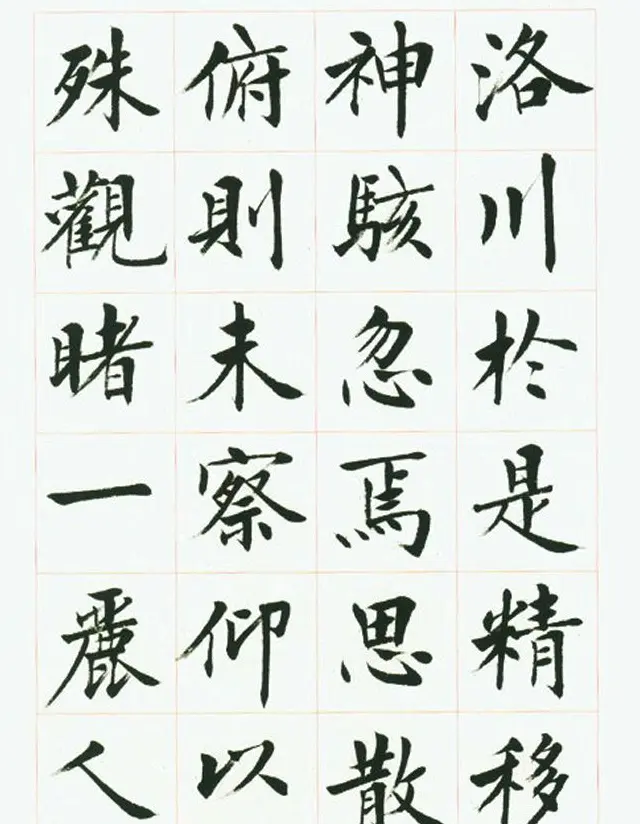 洛川於是精移
神駭忽焉思散
俯則未察仰以
殊觀睹一麗人